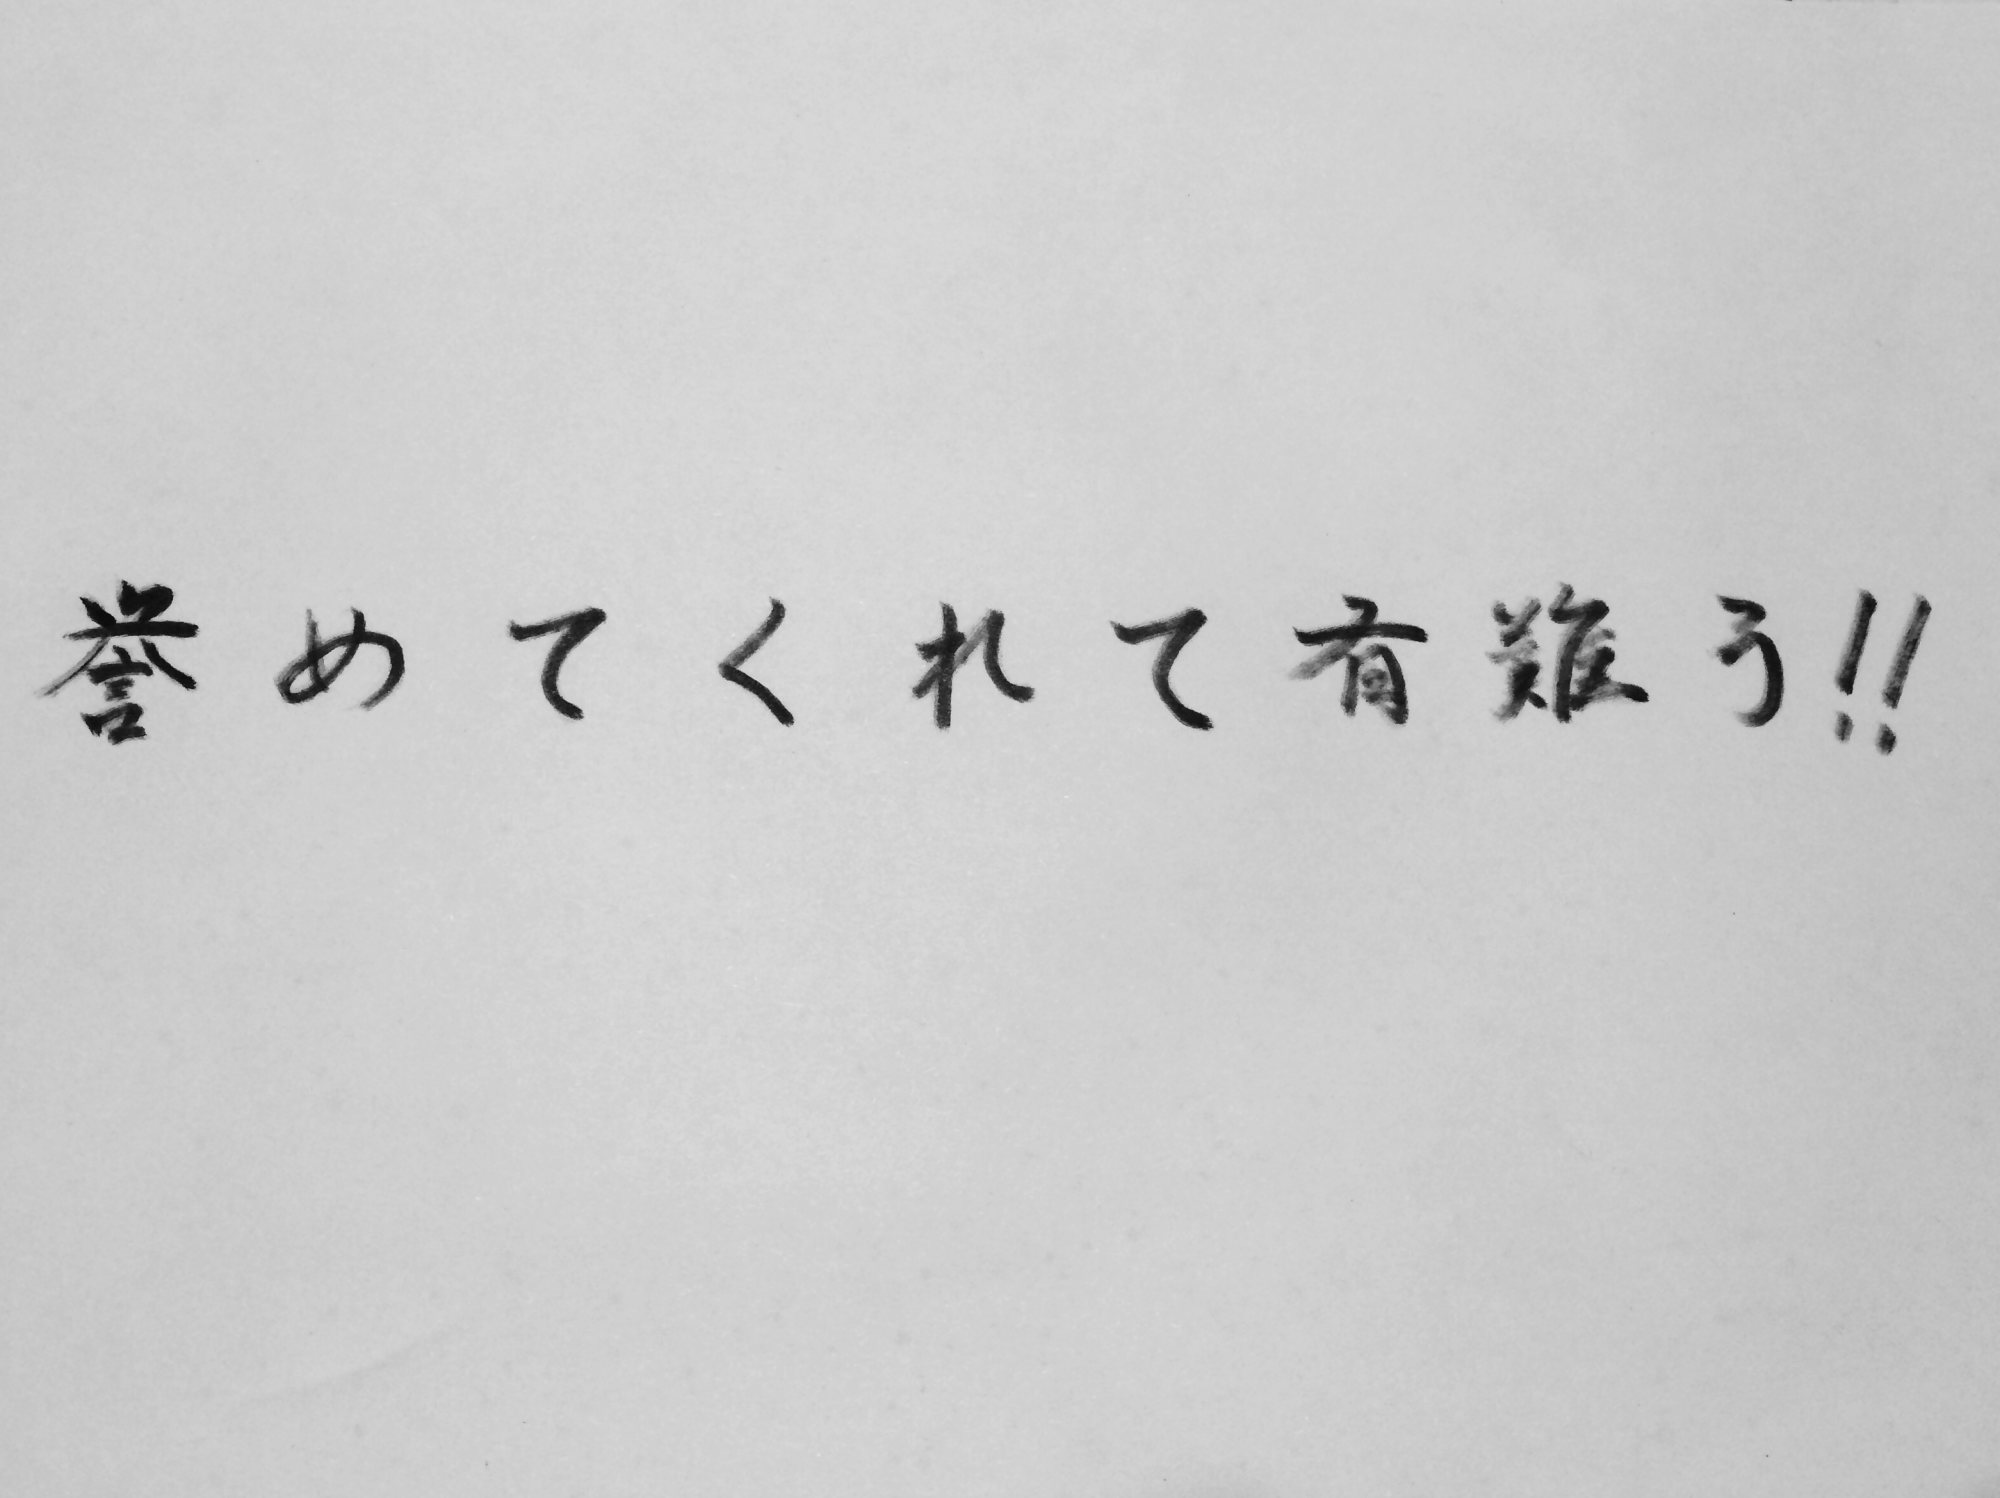 誉めてくれて有難う!!